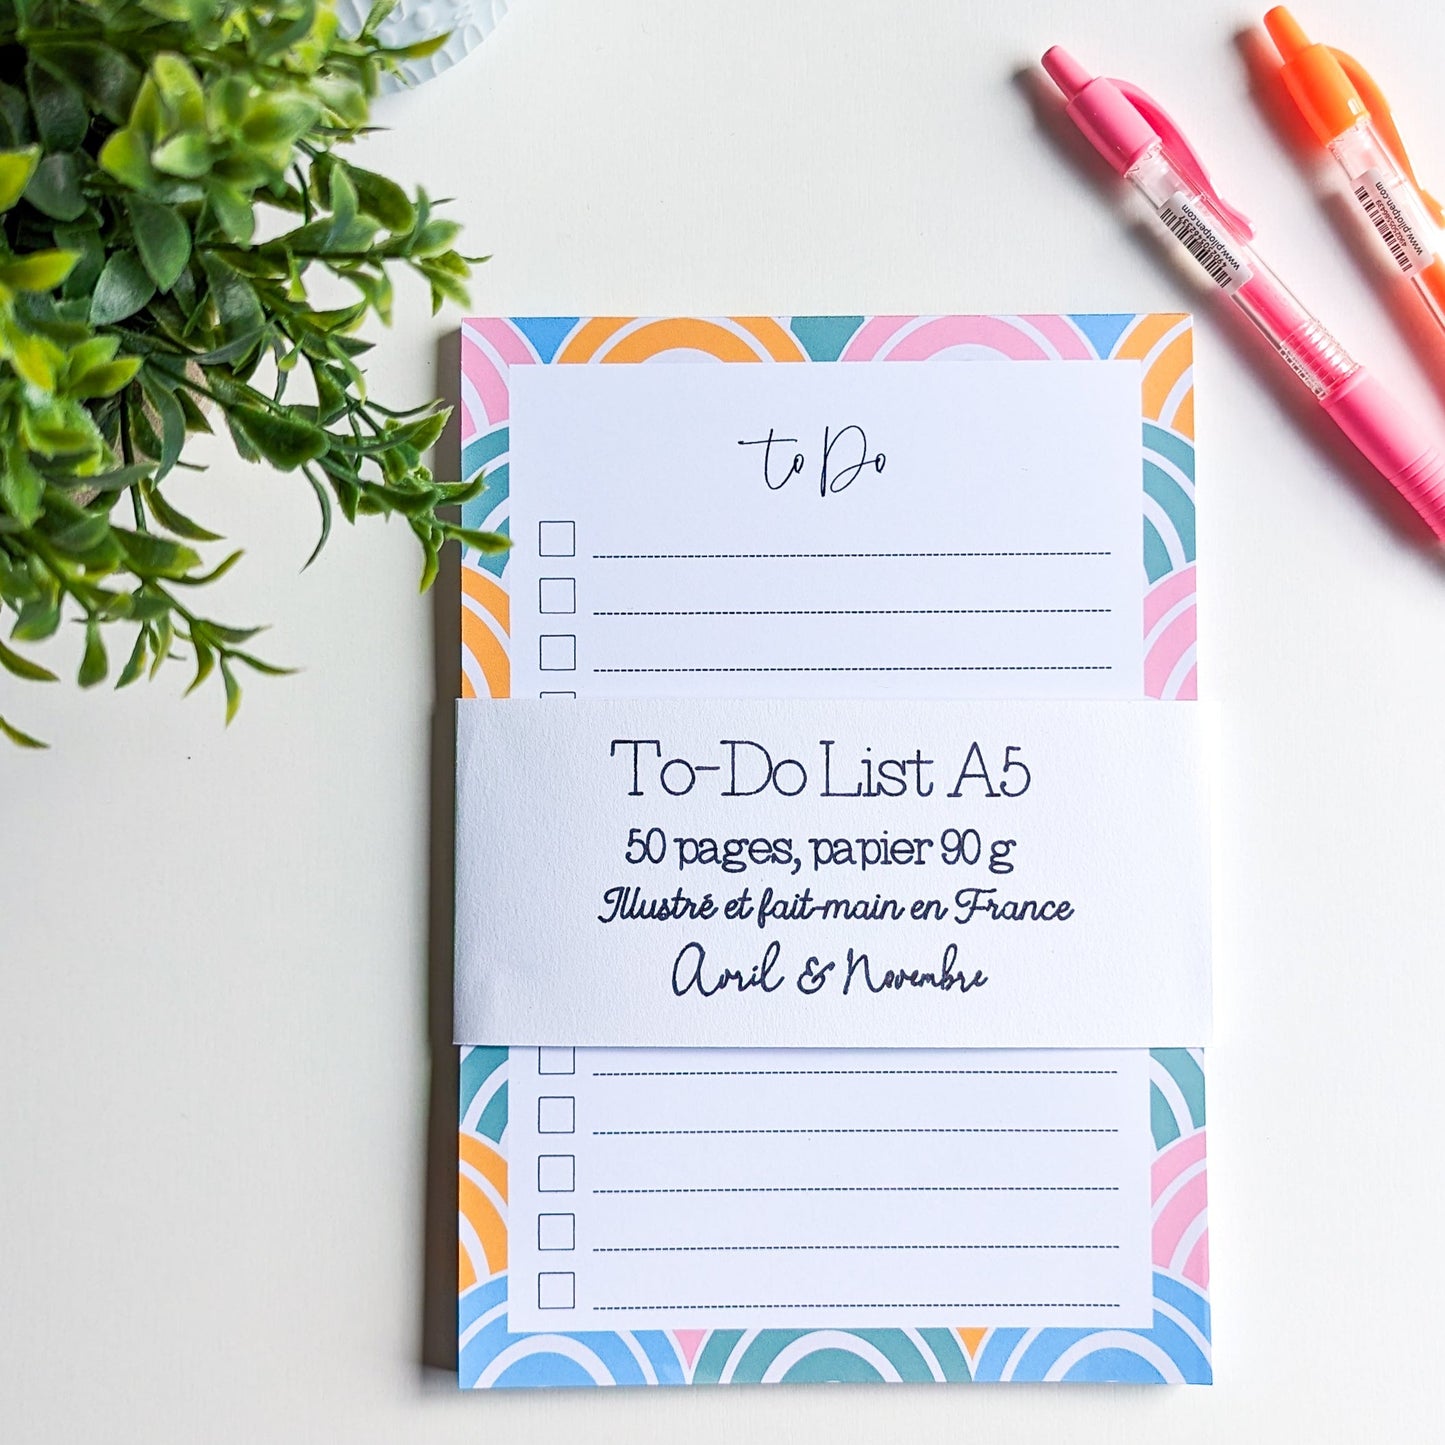 to Do
To-Do List A5
50 pages, papier 90 g
Illustré et fait-main en France
Avril & Novembre
www.pilotpen.com
www.pilotpen.com